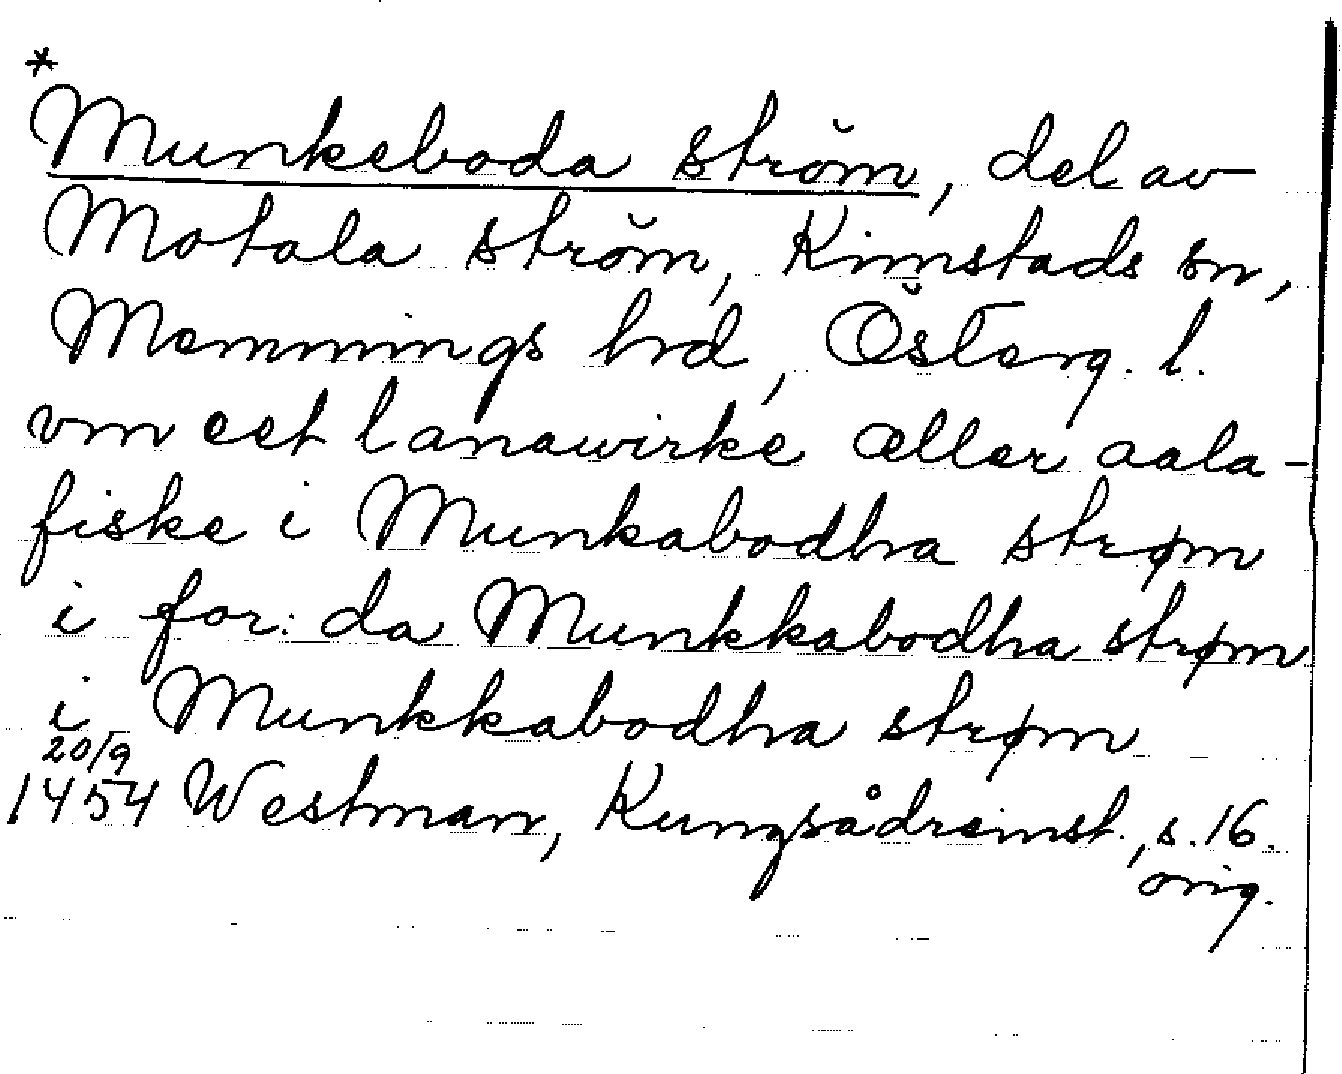 *
Munkeboda ström, del av
Motala ström, Kimstads sn,
Memmings hrd, Österg. l.
vm eet lanawirke æller aala-
fiske i Munkabodha strøm
i for: da Munkkabodha strøm
i Munkkabodha strøm
20/9
1454 Westman, Kungsådreinst., s. 16.
orig.